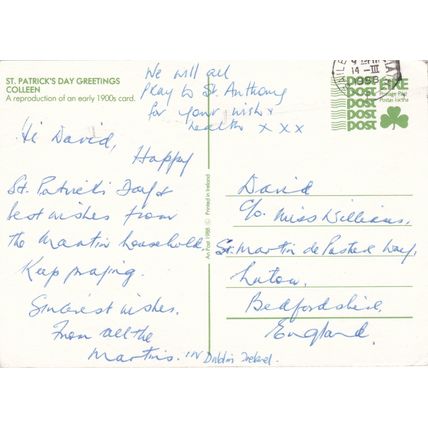 ST. PATRICK'S DAY GREETINGS
COLLEEN
A reproduction of an early 1900s card.
We will all
pray to St. Anthony
for your wish &
health x x x
Hi David,
Happy
St. Patrick's Day &
best wishes from
the Martin household.
Keep praying.
Sincerest wishes.
From all the
Martins. in Dublin Ireland.
An Post 1988 © Printed in Ireland
14 -III
POST
POST
POST
POST
POST
ÉIRE
Postage Paid
Postas Íoctha
David
C/o Miss Williams,
St. Martin de
Luton,
Bedfordshire,
England.